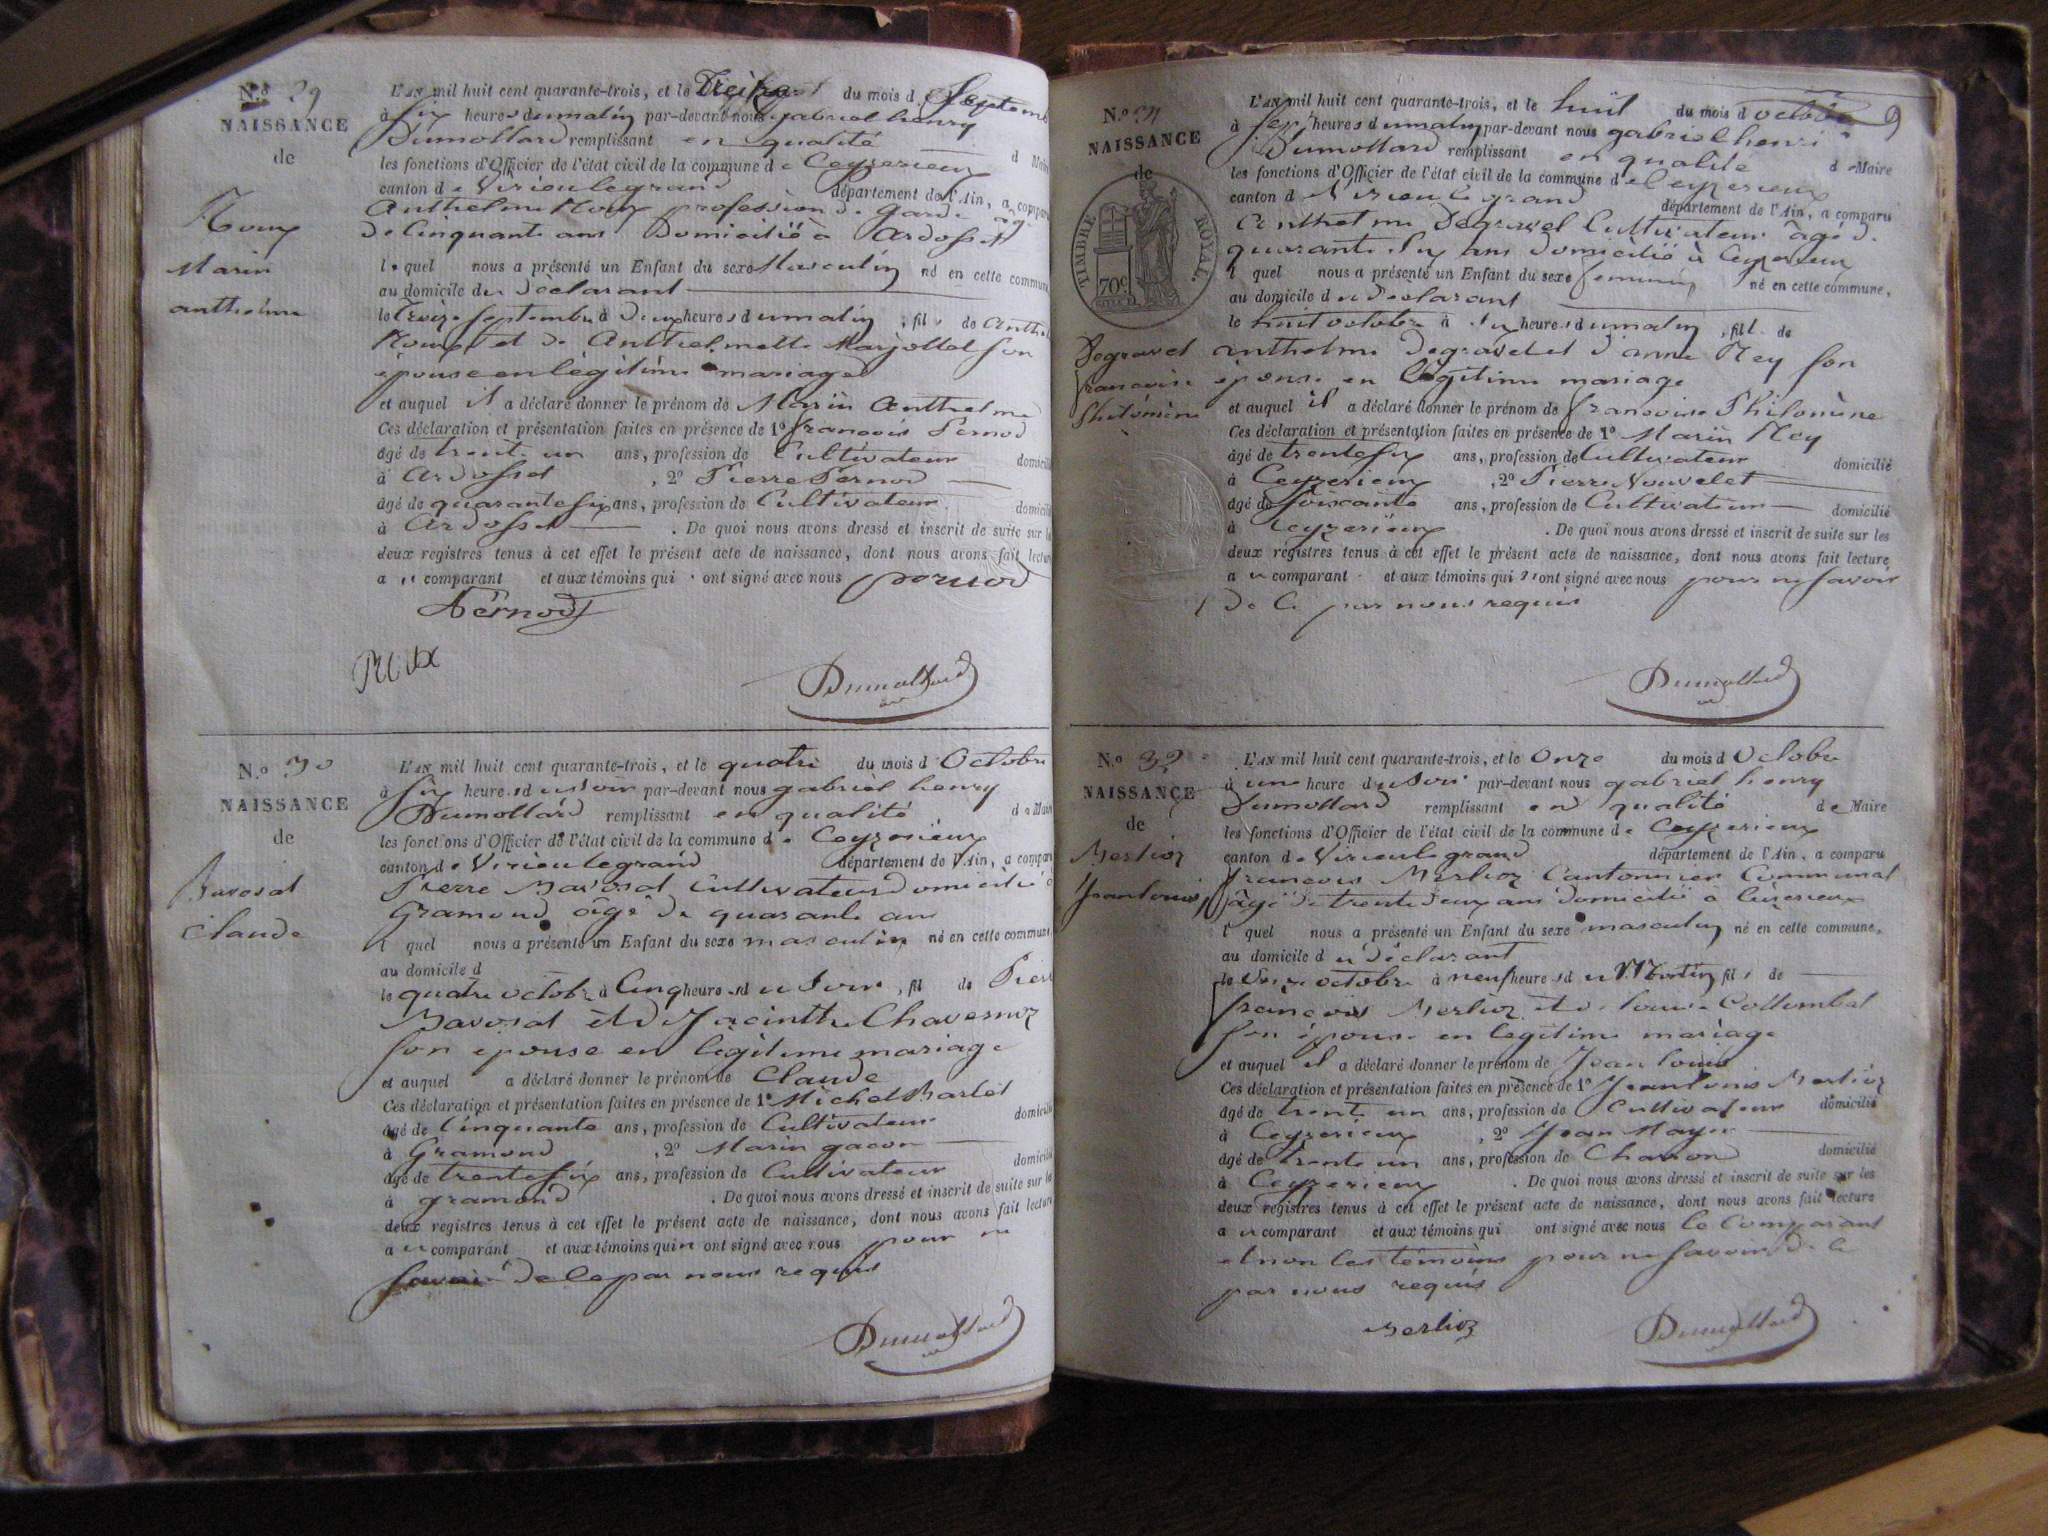 N.o 29
NAISSANCE
de
Roux
Marin
anthelme
L'AN mil huit cent quarante-trois, et le treize du mois d. Septemb
à six heures du matin par-devant nous gabriel henry
Dumollard remplissant en qualité d Maire
les fonctions d'Officier de l'état civil de la commune de Ceyzerieux
canton de Virieu le grand département de l'Ain, a comparu
Anthelme Roux profession de garde âgé
de Cinquante ans Domicilié à Ardosset
lequel nous a présenté un Enfant du sexe Masculin né en cette commune,
au domicile du déclarant
le treize Septembre à deux heures du matin, fils de Anthe
Roux et de Anthelmette Marjollet son
épouse en légitime mariage
et auquel il a déclaré donner le prénom de Marin Anthelme
Ces déclaration et présentation faites en présence de 1o françois Pernod
âgé de trente un ans, profession de Cultivateur domicilié
à Ardosset, 2o Pierre Pernod
âgé de quarante six ans, profession de Cultivateur domicilié
à Ardosset. De quoi nous avons dressé et inscrit de suite sur le
deux registres tenus à cet effet le présent acte de naissance, dont nous avons fait lecture
a u comparant et aux témoins qui ont signé avec nous pernod
Pernod
Roux
Dumollard
N.o 30
NAISSANCE
de
Bavosat
Claude
L'AN mil huit cent quarante-trois, et le quatre du mois d Octobre
à six heures du soir par-devant nous gabriel henry
Dumollard remplissant en qualité de Maire
les fonctions d'Officier de l'état civil de la commune de Ceyzerieux
canton de Virieu le grand département de l'Ain, a comparu
Pierre Bavosat Cultivateur domicilié à
Gramond âgé de quarante ans
l quel nous a présenté un Enfant du sexe masculin né en cette commune,
au domicile d
le quatre octobre à Cinq heures du soir, fil de Pierr
Bavosat et de Jacinthe Chavernoz
son épouse en légitime mariage
et auquel a déclaré donner le prénom de Claude
Ces déclaration et présentation faites en présence de 1o Michel Barlet
âgé de Cinquante ans, profession de Cultivateur domicilié
à Gramond, 2o Marin gacon
âgé de trente six ans, profession de Cultivateur domicilié
à gramond. De quoi nous avons dressé et inscrit de suite sur le
deux registres tenus à cet effet le présent acte de naissance, dont nous avons fait lecture
a u comparant et aux témoins qui n ont signé avec nous pour ne
savoir de ce par nous requis
Dumollard
9
N.o 31
NAISSANCE
de
TIMBRE ROYAL
70c
Degravel
francoise
Philomène
L'AN mil huit cent quarante-trois, et le huit du mois d octobre
à sept heures du matin par-devant nous gabriel henri
Dumollard remplissant en qualité de Maire
les fonctions d'Officier de l'état civil de la commune de Ceyzerieux
canton d Virieu le grand département de l'Ain, a comparu
Anthelme Degravel Cultivateur âgé de
quarante six ans domicilié à Ceyzerieux
l quel nous a présenté un Enfant du sexe feminin né en cette commune,
au domicile du déclarant
le huit octobre à six heures du matin, fill de
anthelme degravel et d'anne Rey son
épouse en légitime mariage
et auquel il a déclaré donner le prénom de francoise Philomène
Ces déclaration et présentation faites en présence de 1o Marin Rey
âgé de trente six ans, profession de Cultivateur domicilié
à Ceyzerieux, 2o Pierre Nouvelet
âgé de soixante ans, profession de Cultivateur domicilié
à Ceyzerieux. De quoi nous avons dressé et inscrit de suite sur les
deux registres tenus à cet effet le présent acte de naissance, dont nous avons fait lecture
a u comparant et aux témoins qui n'ont signé avec nous pour ne savoir
de ce par nous requis
Dumollard
N.o 32
NAISSANCE
de
Berlioz
Jean louis
L'AN mil huit cent quarante-trois, et le Onze du mois d Octobre
à une heure du soir par-devant nous gabriel henry
Dumollard remplissant en qualité de Maire
les fonctions d'Officier de l'état civil de la commune de Ceyzerieux
canton de Virieu le grand département de l'Ain, a comparu
francois Berlioz Cantonnier Communal
âgé de trente deux ans domicilié à Ceizerieux
l quel nous a présenté un Enfant du sexe masculin né en cette commune,
au domicile du déclarant
le onze octobre à neuf heures du Matin fils de
françois Berlioz et de louise Collombat
son épouse en legitime mariage
et auquel il a déclaré donner le prénom de Jean louis
Ces déclaration et présentation faites en présence de 1o Jean louis Berlioz
âgé de trente un ans, profession de Cultivateur domicilié
à Ceyzerieux, 2o Jean Maye
âgé de trente un ans, profession de Charron domicilié
à Ceyzerieux. De quoi nous avons dressé et inscrit de suite sur les
deux registres tenus à cet effet le présent acte de naissance, dont nous avons fait lecture
a u comparant et aux témoins qui ont signé avec nous le Comparant
et non les témoins pour ne savoir de ce
par nous requis
Berlioz
Dumollard